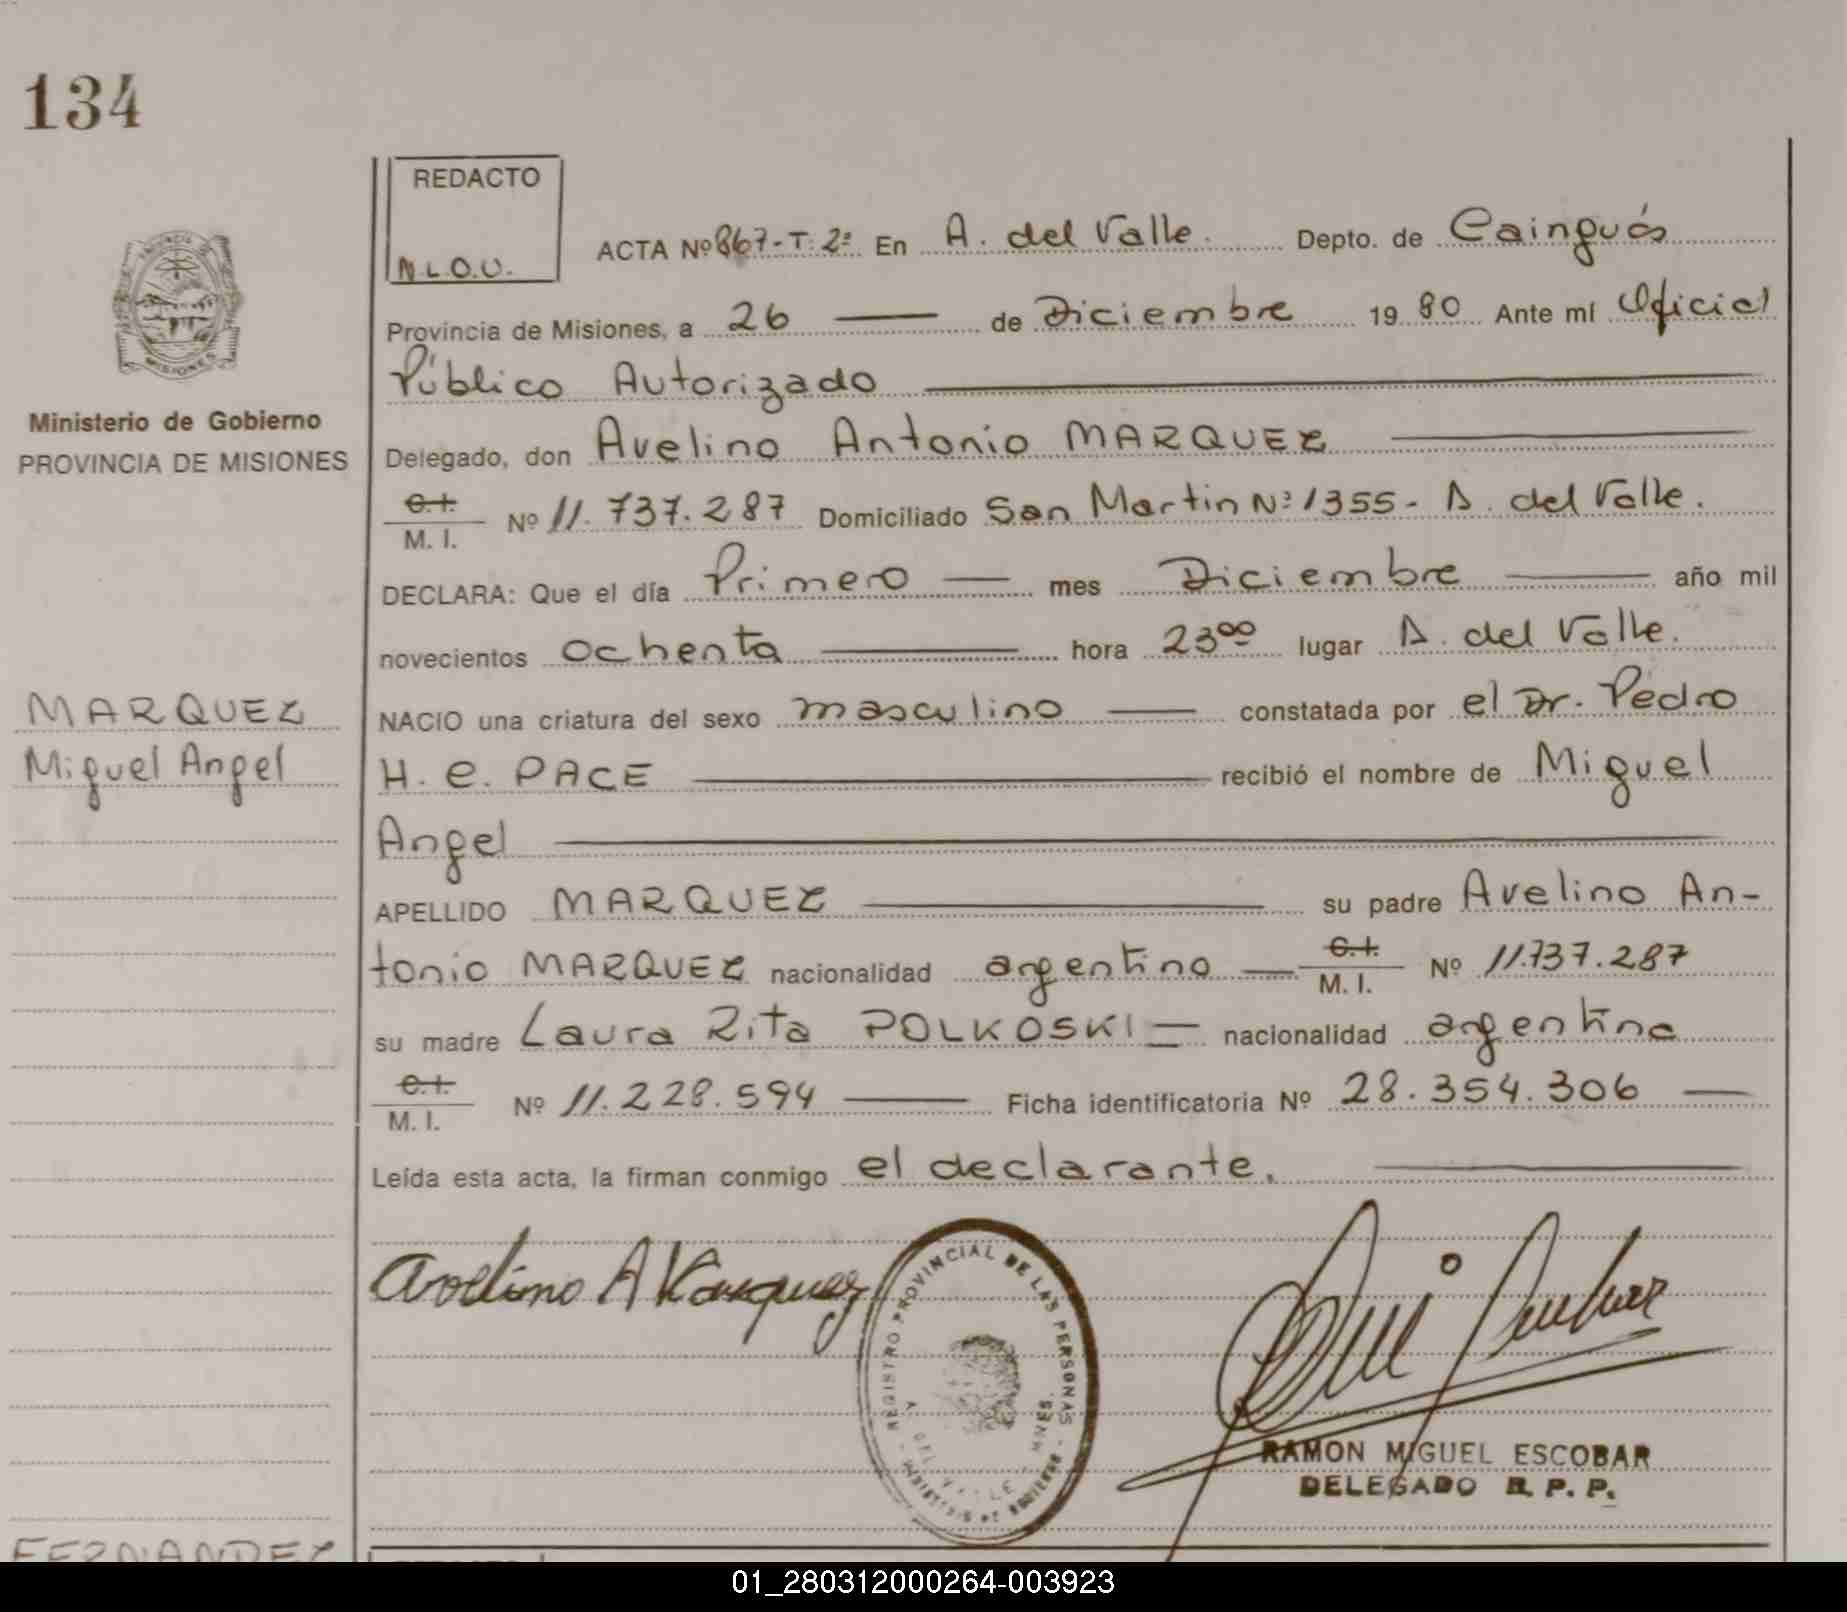 134
REDACTO
N.L.O.U.
ACTA Nº 867-T: 2ª En A. del Valle. Depto. de Cainguás
Provincia de Misiones, a 26 — de Diciembre 1980 Ante mí Oficial
Público Autorizado
Ministerio de Gobierno
PROVINCIA DE MISIONES
Delegado, don Avelino Antonio MARQUEZ
C.I. M. I. Nº 11.737.287 Domiciliado San Martin Nº 1355- A. del Valle.
DECLARA: Que el día Primero — mes Diciembre — año mil
novecientos ochenta — hora 23⁰⁰ lugar A. del Valle.
MARQUEZ
Miguel Angel
NACIO una criatura del sexo masculino — constatada por el Dr. Pedro
H. C. PACE — recibió el nombre de Miguel
Angel
APELLIDO MARQUEZ — su padre Avelino An-
tonio MARQUEZ nacionalidad argentino — C.I. M. I. Nº 11.737.287
su madre Laura Rita POLKOSKI — nacionalidad argentina
C.I. M. I. Nº 11.228.594 — Ficha identificatoria Nº 28.354.306 —
Leída esta acta, la firman conmigo el declarante.
Avelino A Marquez
REGISTRO PROVINCIAL DE LAS PERSONAS
RAMON MIGUEL ESCOBAR
DELEGADO R. P. P.
FERNANDEZ
01_280312000264-003923